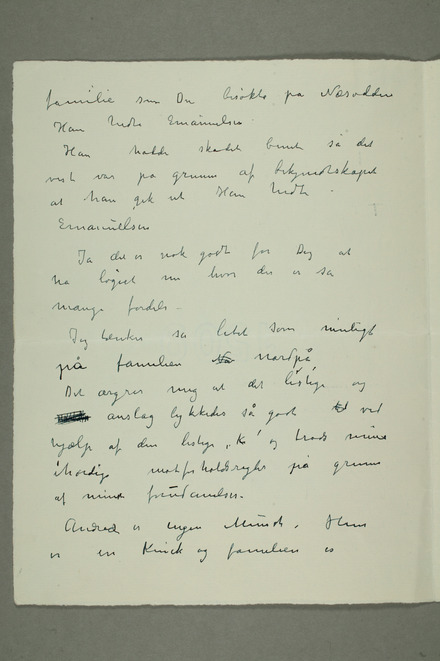 familie som Du besøkte på Næsodden
Han hedte Emanuelsen
Han hadde skadet benet så det
vist var på grunn af bekjendtskapet
at han gik ut Han hedte
Emanuelsen
Ja det er nok godt for Dig at
ha logiet nu hvor der er så
mange fordele –
Jeg tænker så lidet som muligt
på familien nordpå
Det ærgrer mig at det listige og
anslag lykkedes så godt ved
hjælp af den listige „K" og trods mine
ihærdige motforholdsregler på grunn
af mine forudanelser.
Andrea er ingen Munch. Hun
er en Kinck og familien is